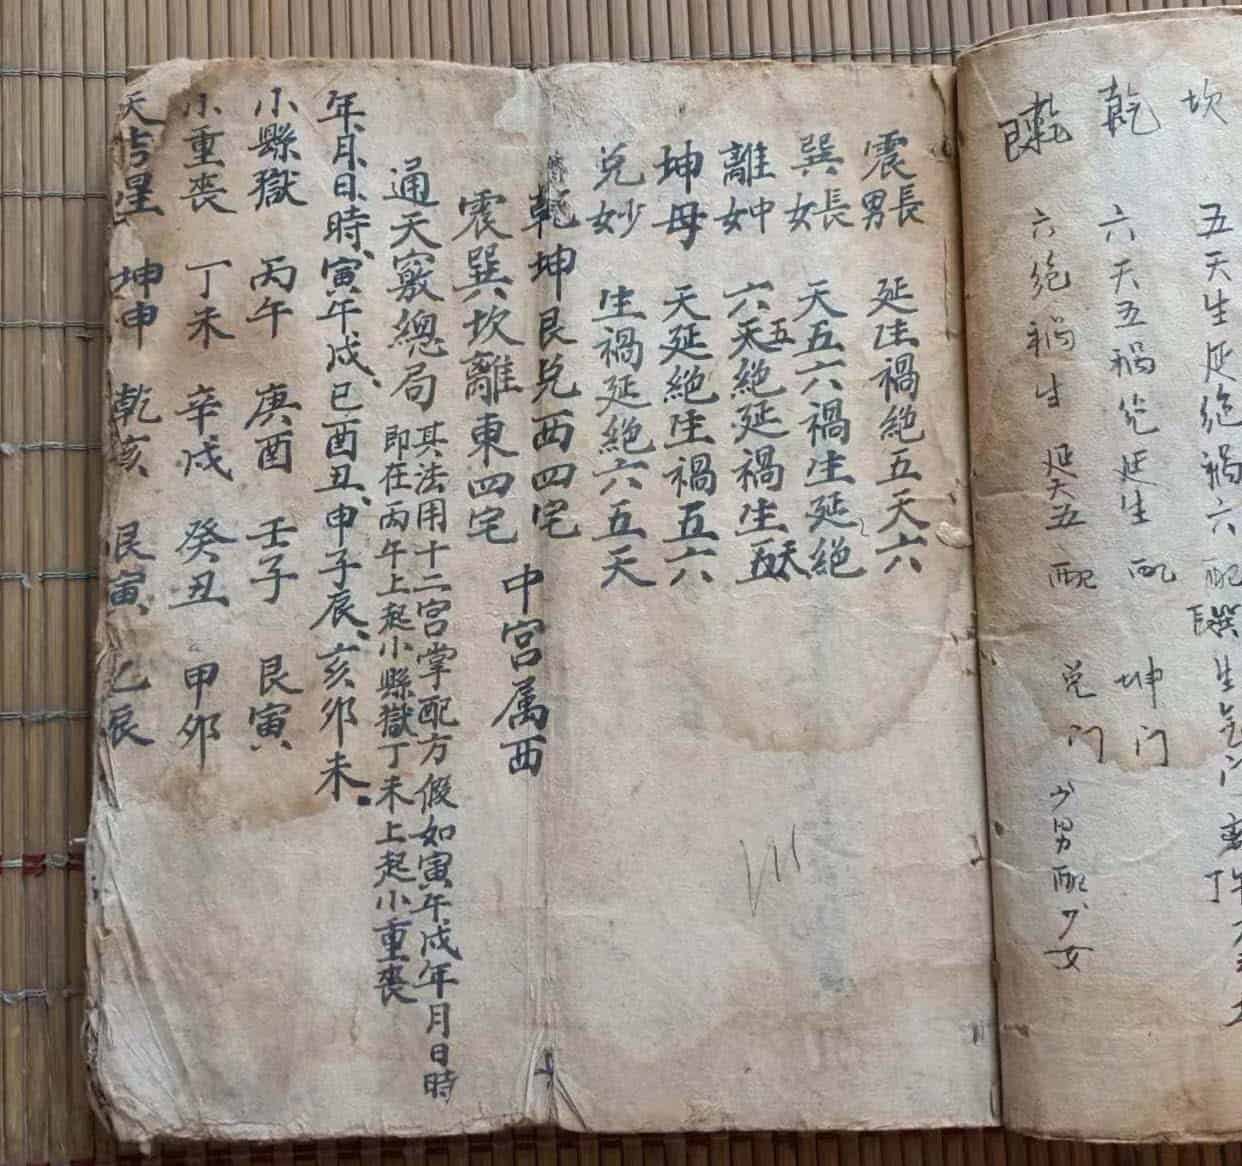 坎 五天生延绝祸六配
巽 生气门
乾 六天五祸绝延生配 坤门
艮 六绝祸生延天五配 兑门 少男配少女
震長男 延生禍絕五天六
巽長女 天五六禍生延絕
離中女 六五天絕延禍生
坤母 天延絕生禍五六
兌少女 生禍延絕六五天
乾坤艮兌西四宅 中宮属西
震巽坎離東四宅
通天竅總局 其法用十二宮掌配方假如寅午戌年月日時
即在丙午上起小縣獄丁未上起小重喪
年、月、日、時、寅午戌、巳酉丑、申子辰、亥卯未
小縣獄 丙午 庚酉 壬子 艮寅
小重喪 丁未 辛戌 癸丑 甲卯
天吉星 坤申 乾亥 艮寅 乙辰